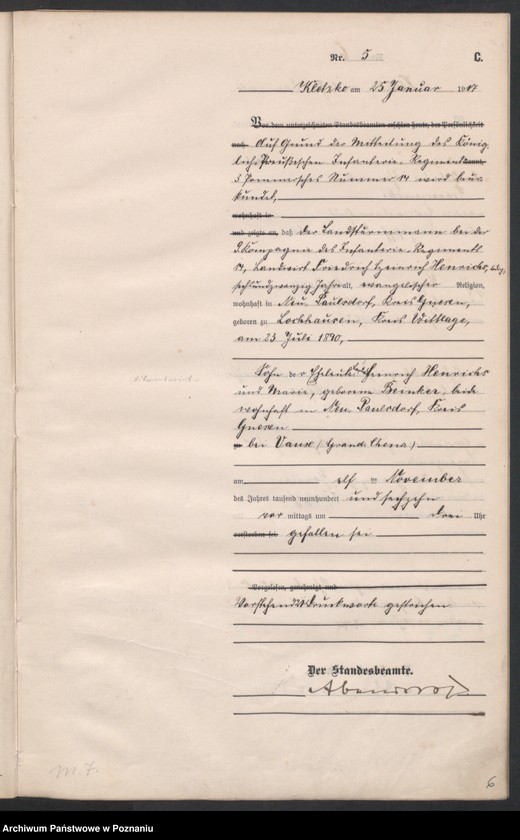 Nr. 5 C.
Kletzko am 25 Januar 1917
Vor dem unterzeichneten Standesbeamten erschien heute, der Persönlichkeit
nach Auf Grund der Mitteilung des König-
lich Preußischen Infanterie-Regiments
3. Pommersches Nummer 14 wird beur-
kundet,
wohnhaft in
und zeigte an, daß der Landsturmmann bei der
Kompagnie des Infanterie-Regiments
14, Landwirt Friedrich Heinrich Henrichs, ledig,
sechsundzwanzig Jahre alt, evangelischer Religion,
wohnhaft in Neu Paulsdorf, Kreis Gnesen,
geboren zu Lockhausen, Kreis Wittlage,
am 23 Juli 1890,
Sohn der Eheleute Heinrich Henrichs
und Marie, geborene Beinker, beide
wohnhaft in Neu Paulsdorf, Kreis
Gnesen
bei Vaux (Grand Chena)
am elf ten November
des Jahres tausend neunhundert und sechzehn
vor mittags um drei Uhr
verstorben sei gefallen sei
Vorgelesen, genehmigt und
Vorstehend Druckworte gestrichen
Der Standesbeamte.
Abendroth
m. 7.
6
Archiwum Państwowe w Poznaniu